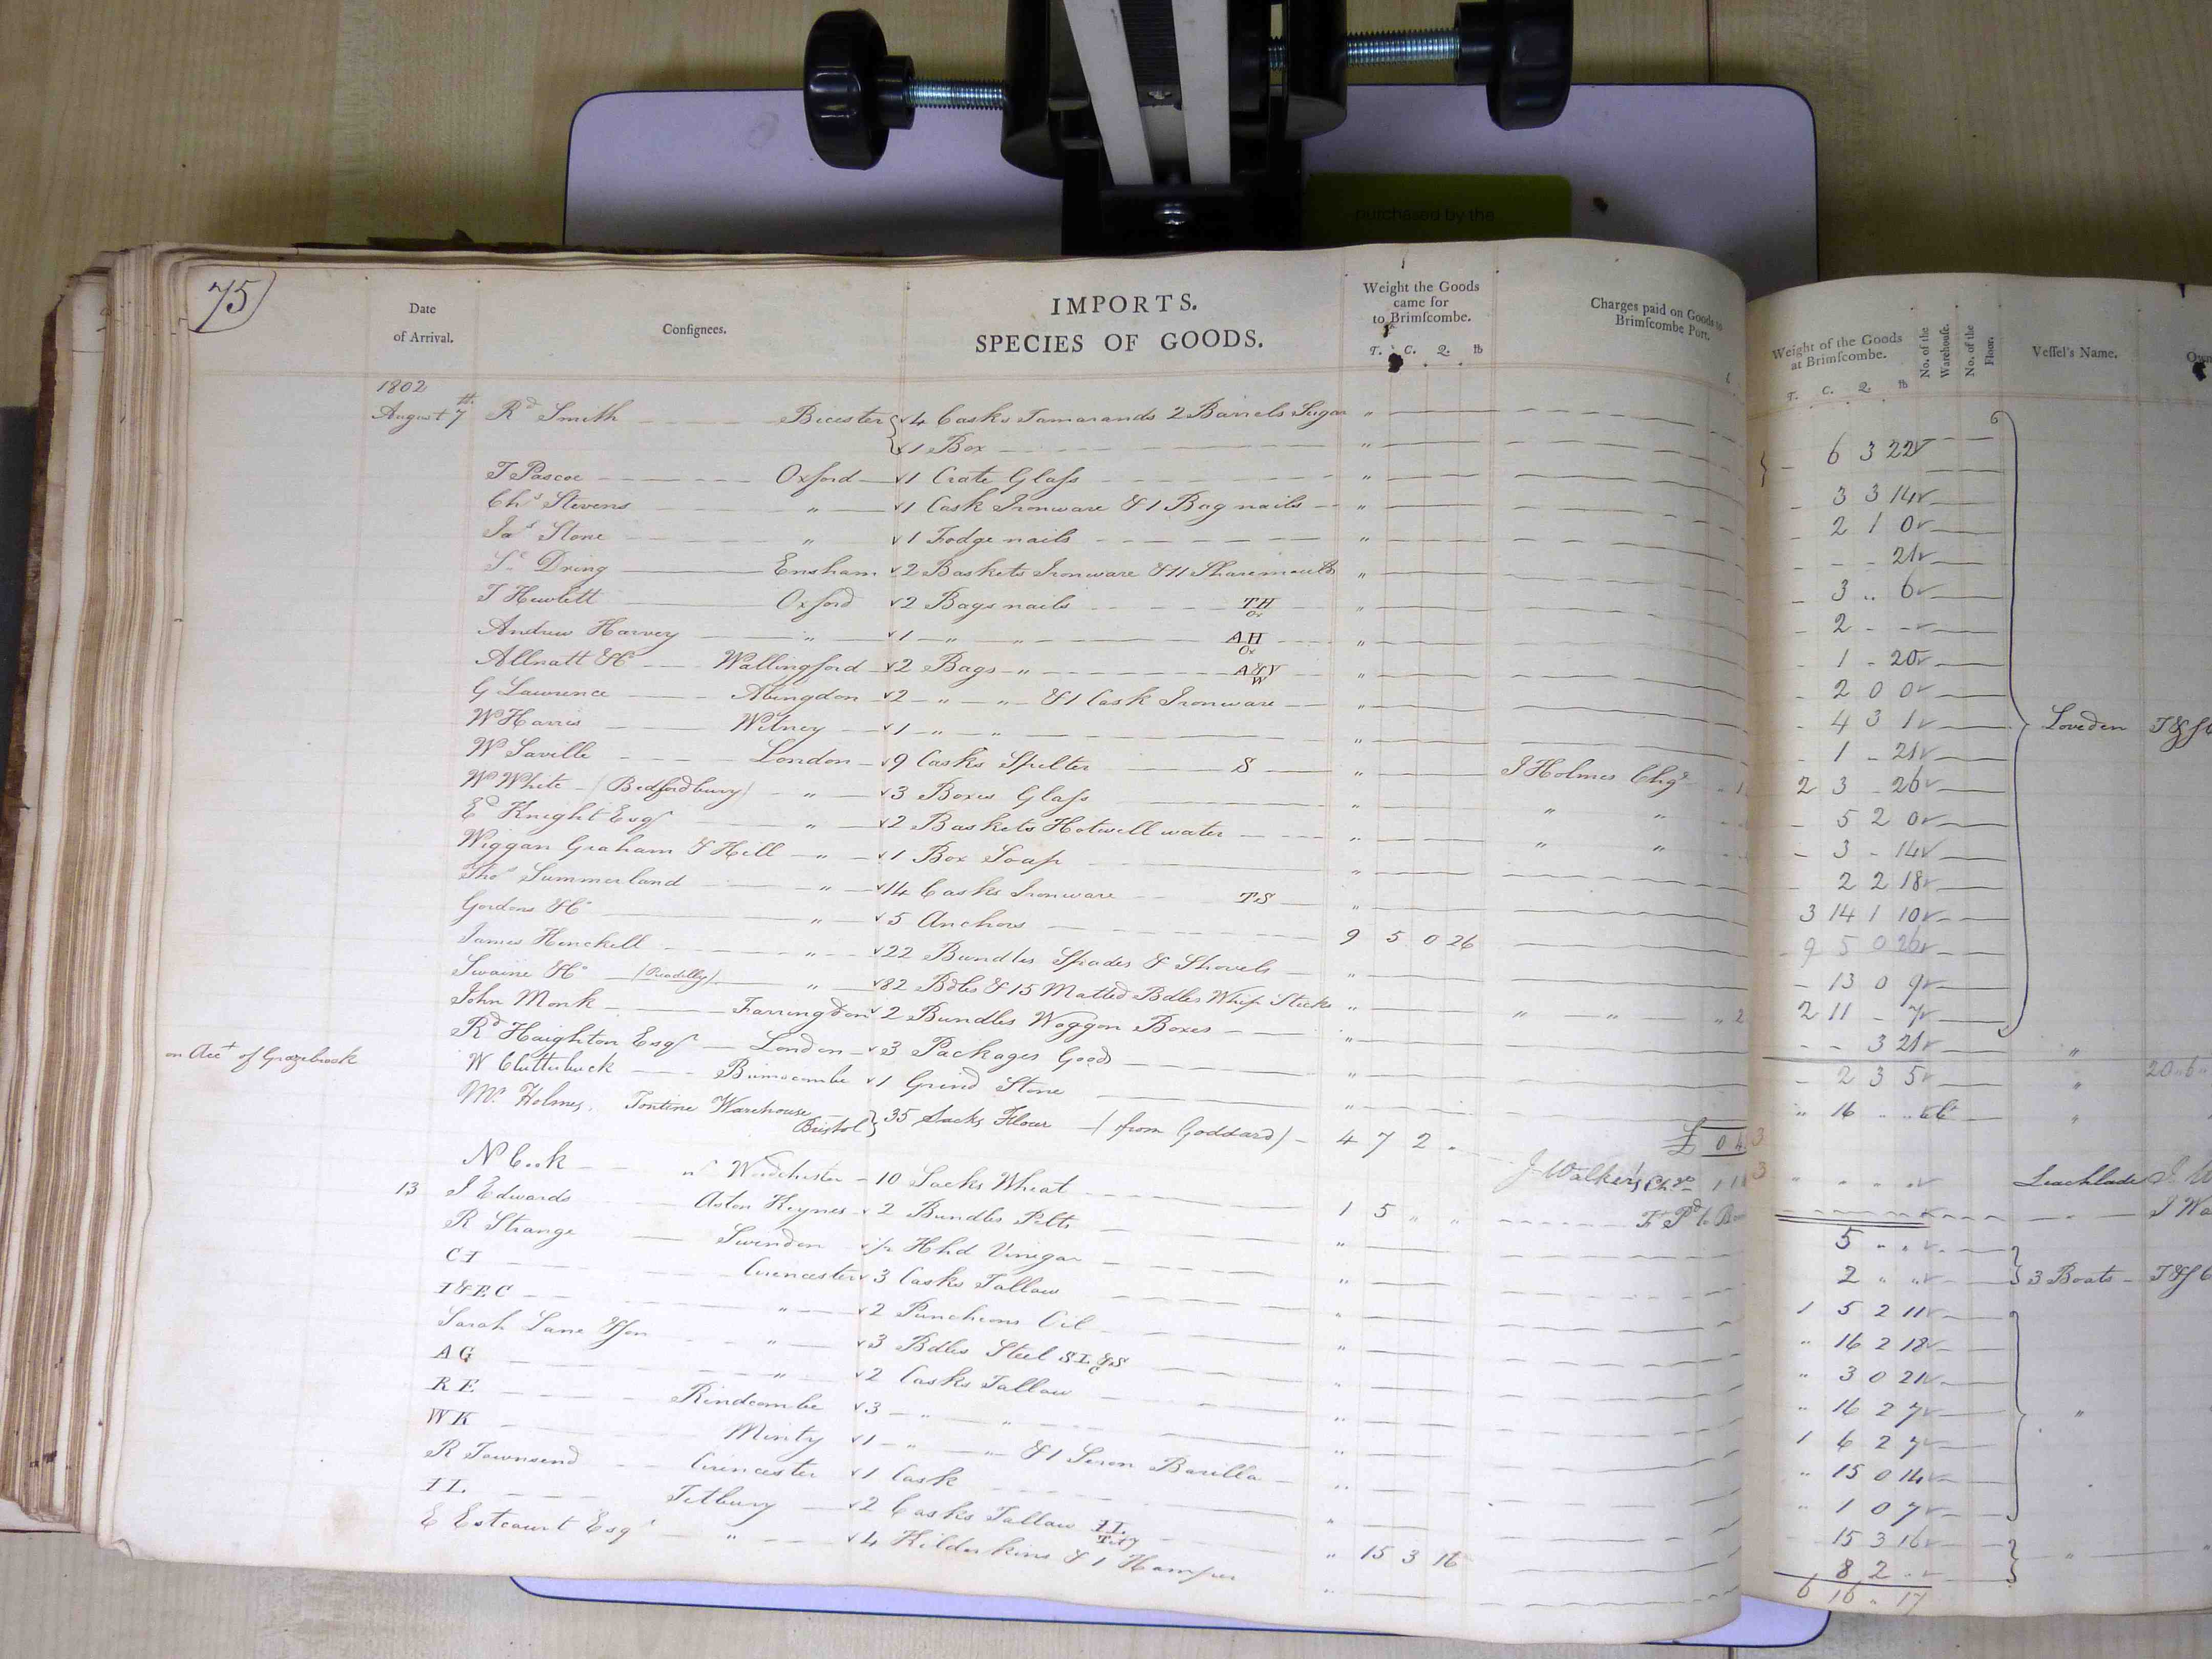 purchased by the
75
Date of Arrival.
Consignees.
IMPORTS.
SPECIES OF GOODS.
Weight the Goods came for to Brimscombe.
T. C. Q. lb
Charges paid on Goods to Brimscombe Port.
Weight of the Goods at Brimscombe.
T. C. Q. lb
No. of the Warehouse.
No. of the Floor.
Vessel's Name.
1802
August 7th Rd Smith Bicester 4 Casks Tamarands 2 Barrels Sugar "
1 Box " 6 3 22
T Pascoe Oxford 1 Crate Glass " 3 3 14
Chs Stevens " 1 Cask Ironware & 1 Bag nails " 2 1 0
Jas Stone " 1 Fodge nails " 21
Dring Ensham 2 Baskets Ironware & 11 Sharemoulds " 3 .. 6
T Hewlett Oxford 2 Bags nails TH Ox " 2 - -
Andrew Harvey " 1 " " AH Ox " 1 - 20
Allnatt & Co Wallingford 2 Bags " A&Y W " 2 0 0
G Lawrence Abingdon 2 " " & 1 Cask Ironware " 4 3 1
W Harris Witney 1 " " " 1 - 21
W Saville London 9 Casks Spelter S " J Holmes Chgs 2 3 - 26
W White (Bedfordbury) " 3 Boxes Glass " " " 5 2 0
Ed Knight Esqr " 2 Baskets Hotwell water " " " 3 - 14
Wiggan Graham & Hill " 1 Box Soap " 2 2 18
Thos Summerland " 14 Casks Ironware TS " 3 14 1 10
Gordons & Co " 5 Anchors 9 5 0 26 9 5 0 26
James Henckell " 22 Bundles Spades & Shovels " 13 0 9
Swaine & Co (Picadilly) " 82 Bdles & 15 Matted Bdles Whip Sticks " " " " 2 2 11 - 7
John Monk Farringdon 2 Bundles Waggon Boxes " - - 3 21
Loveden T & J
Rd Haighton Esqr London 3 Packages Goods " 2 3 5 "
on Acct of Grazebrook W Clutterbuck Brimscombe 1 Grind Stone " " 16 "
Mr Holmes, Tontine Warehouse Bristol 35 Sacks Flour (from Goddard) 4 7 2 . Leachlade
£ 0
J Walker's Chgs
N Cook Woodchester 10 Sacks Wheat 1 5 " "
13 J Edwards Aston Keynes 2 Bundles Pelts " 5 . .
R Strange Swindon 1/2 Hhd Vinegar " 2 " " 3 Boats T & J
CI Cirencester 3 Casks Tallow " 1 5 2 11
I&EC " 2 Puncheons Oil " 16 2 18
Sarah Lane & Son " 3 Bdles Steel SL&S C " 3 0 21
AG " 2 Casks Tallow " 16 2 7
RE Rindcombe 3 " " " 1 6 2 7
WK Minty 1 " " & 1 Seron Barilla " 15 0 14
R Townsend Cirencester 1 Cask " 1 0 7
IL Tetbury 2 Casks Tallow IL " 15 3 16 15 3 16
E Estcourt Esqr " 4 Kilderkins & 1 Hamper " 8 2 "
6 16 " 17